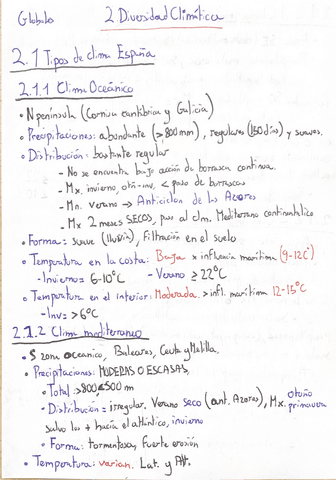 Globalo 2 Diversidad Climática
2.1 Tipos de clima España
2.1.1 Clima Oceánico
• N península (Cornisa cantábrica y Galicia)
• Precipitaciones: abundante (>800mm), regulares (150 días) y suaves.
• Distribución: bastante regular
- No se encuentra bajo acción de borrascas continua.
- Mx. invierno, oto-inv, < paso de borrascas
- Mn. verano → Anticiclon de las Azores
- Mx 2 meses SECOS, paso al clm. Mediterraneo
• Forma: suave (lluvia), filtración en el suelo
• Temperatura en la costa: Baja × influencia marítima (9-12C°)
- Invierno = 6-10°C - Verano ≥ 22°C
• Temperatura en el interior: Moderada > infl. marítima 12-15°C
- Inv = > 6°C
2.1.2 Clima mediterraneo
• S zona oceanico, Baleares, Ceuta y Melilla.
• Precipitaciones: MODERAS O ESCASAS,
• Total: >800 500 m
• Distribución = irregular. Verano seco (ant. Azores), Mx. otoño primavera
salvo los + hacia el atlántico, invierno
• Forma: tormentosa, fuerte erosión
• Temperatura: varian. Lat. y Alt.